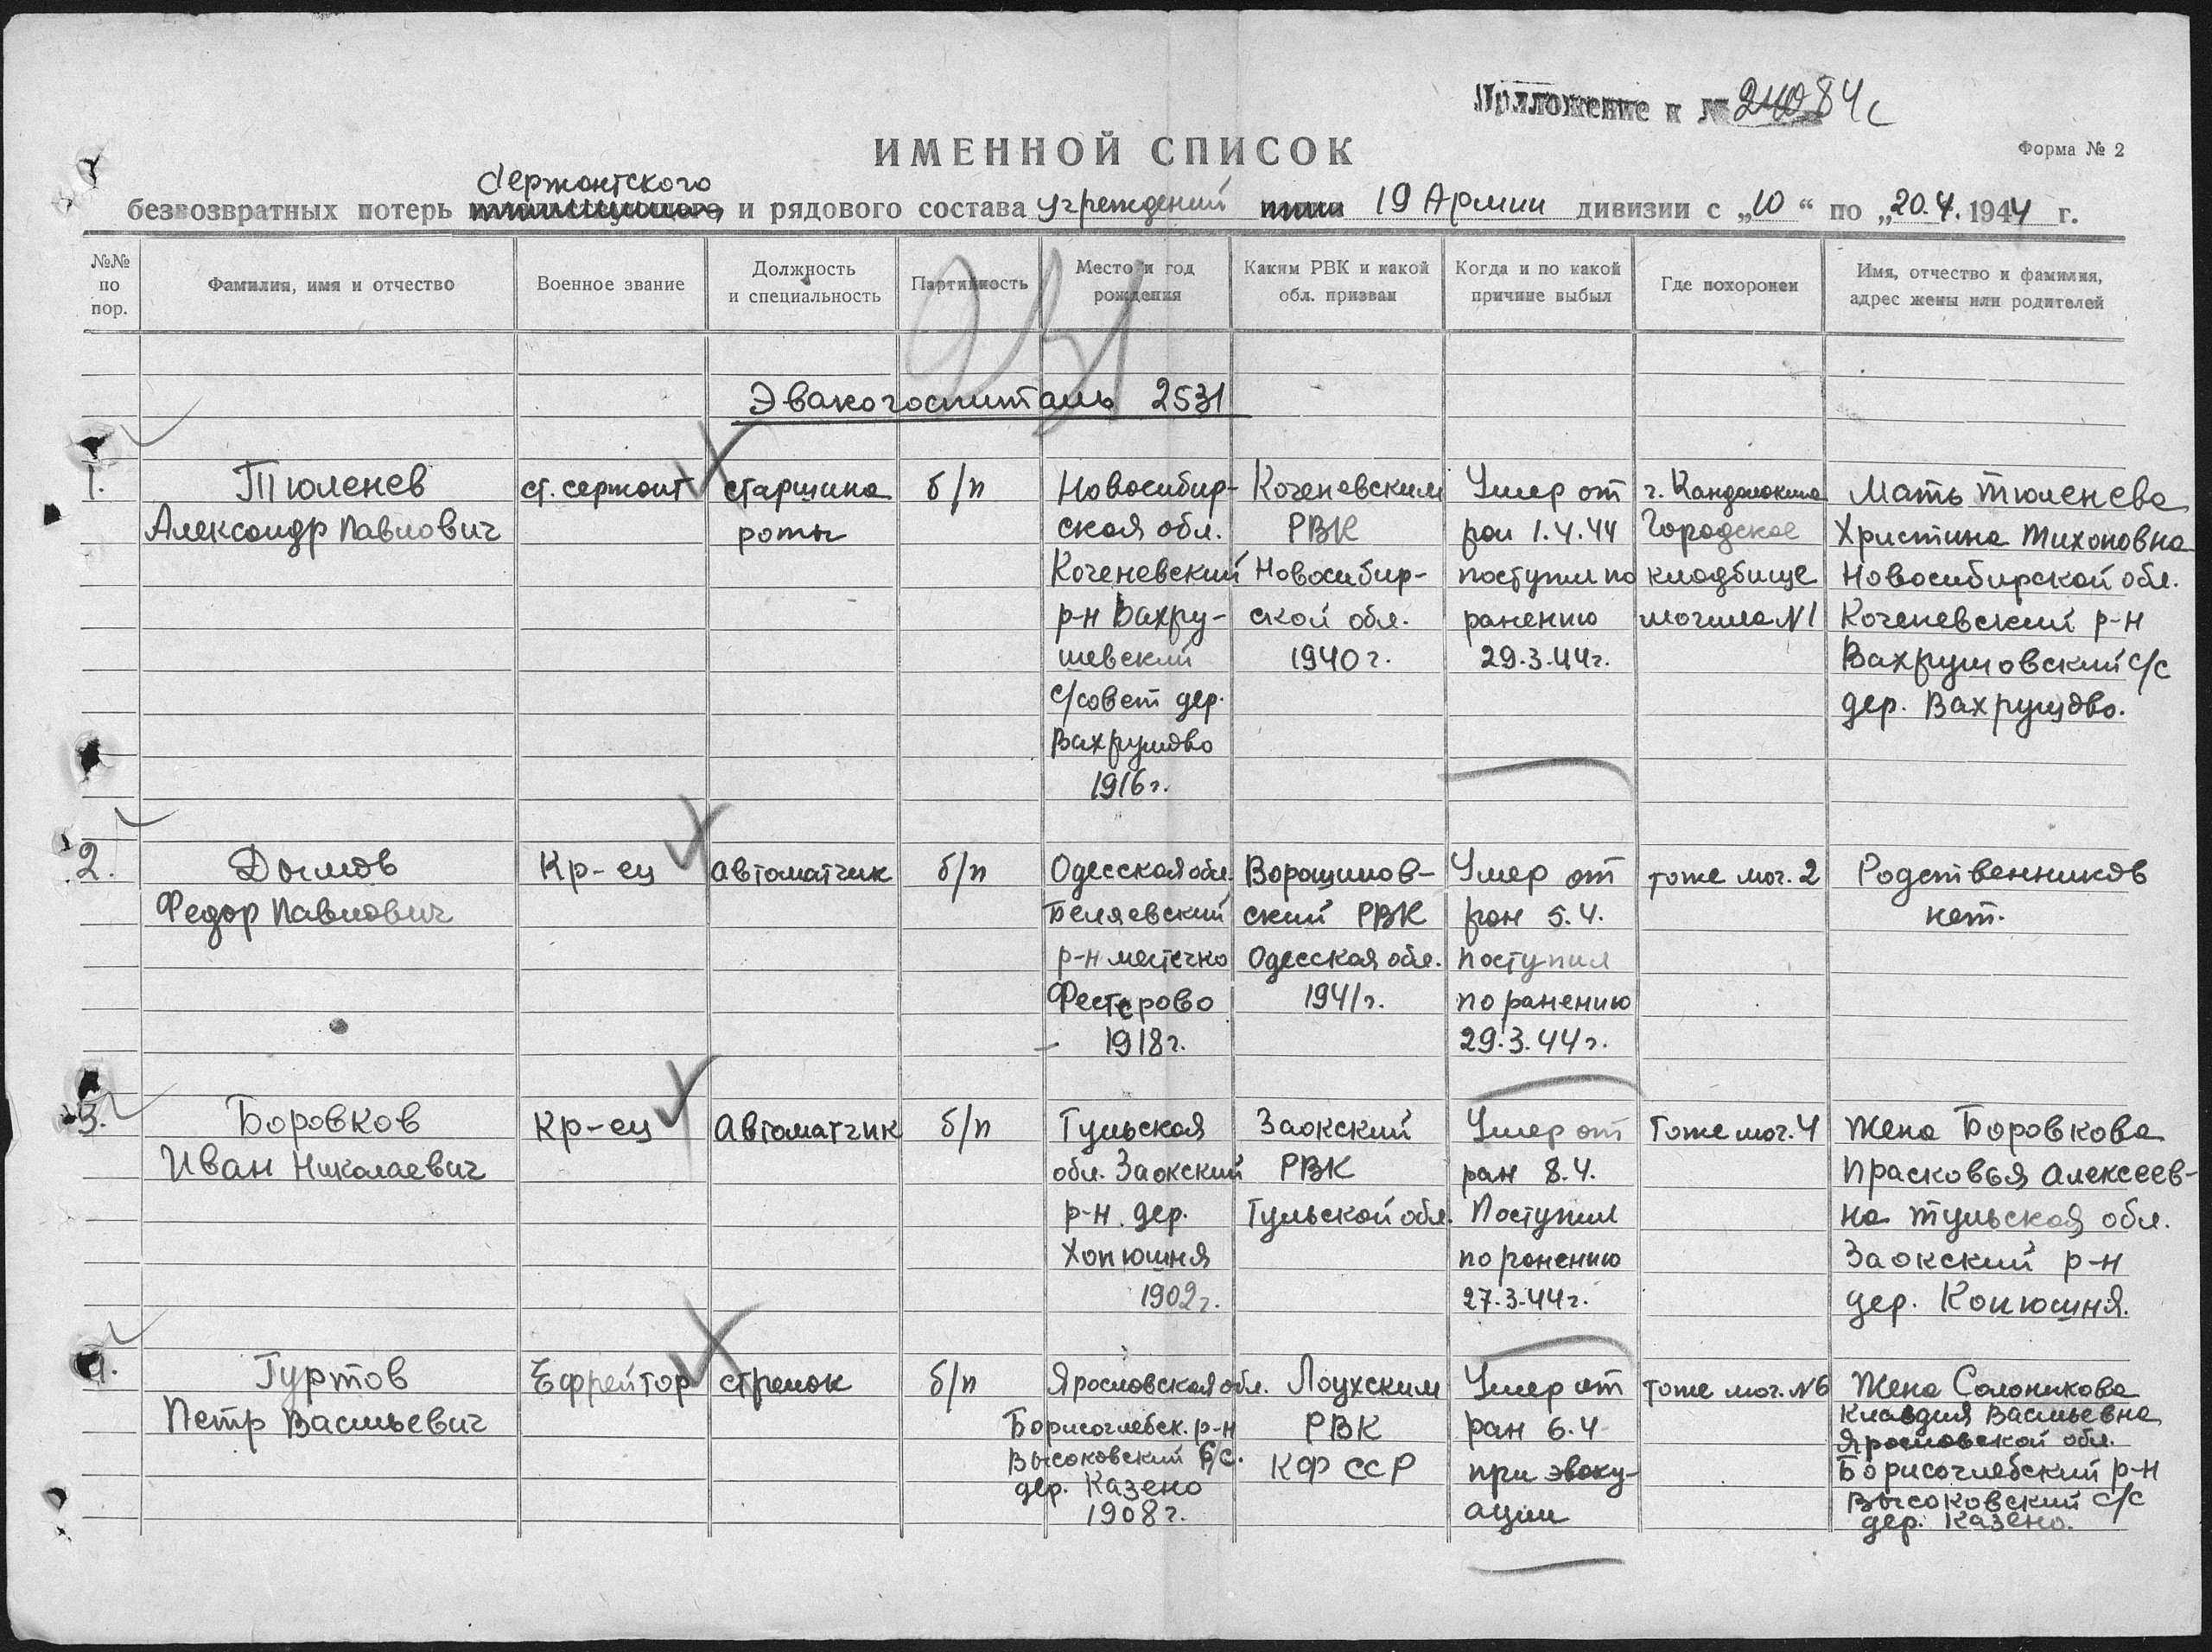 Приложение к № 24084с
ИМЕННОЙ СПИСОК
Форма № 2
сержантского
безвозвратных потерь и рядового состава учреждений 19 Армии дивизии с „10“ по „20.4.1944 г.
№№ по пор.
Фамилия, имя и отчество
Военное звание
Должность и специальность
Партийность
Место и год рождения
Каким РВК и какой обл. призван
Когда и по какой причине выбыл
Где похоронен
Имя, отчество и фамилия, адрес жены или родителей
Эвакогоспиталь 2531
1.
Тюленев
Александр Павлович
ст. сержант
старшина
роты
б/п
Новосибир-
ская обл.
Коченевский
р-н Вахру-
шевский
с/совет дер.
Вахрушово
1916г.
Коченевским
РВК
Новосибир-
ской обл.
1940г.
Умер от
ран 1.4.44
поступил по
ранению
29.3.44г.
г. Кандалакша
Городское
кладбище
могила N1
Мать Тюленева
Христина Тихоновна
Новосибирской обл.
Коченевский р-н
Вахрушовский с/с
дер. Вахрушово.
2.
Дымов
Федор Павлович
Кр-ец
Автоматчик
б/п
Одесская обл.
Беляевский
р-н местечко
Фестерово
1918г.
Ворошилов-
ский РВК
Одесская обл.
1941г.
Умер от
ран 5.4.
поступил
по ранению
29.3.44г.
тоже мог. 2
Родственников
нет.
3.
Боровков
Иван Николаевич
Кр-ец
Автоматчик
б/п
Тульская
обл. Заокский
р-н. дер.
Хопюшня
1902г.
Заокский
РВК
Тульской обл.
Умер от
ран 8.4.
Поступил
по ранению
27.3.44г.
Тоже мог. 4
Жена Боровкова
Прасковья Алексеев-
на Тульская обл.
Заокский р-н
дер. Копюшня.
4.
Гуртов
Петр Васильевич
Ефрейтор
стрелок
б/п
Ярославская обл.
Борисоглебск. р-н
Высоковский с/с.
дер. Казено
1908г.
Лоухским
РВК
КФССР
Умер от
ран 6.4
при эваку-
ации
тоже мог. N6
Жена Солоникова
Клавдия Васильевна
Ярославской обл.
Борисоглебский р-н
Высоковский с/с
дер. Казено.